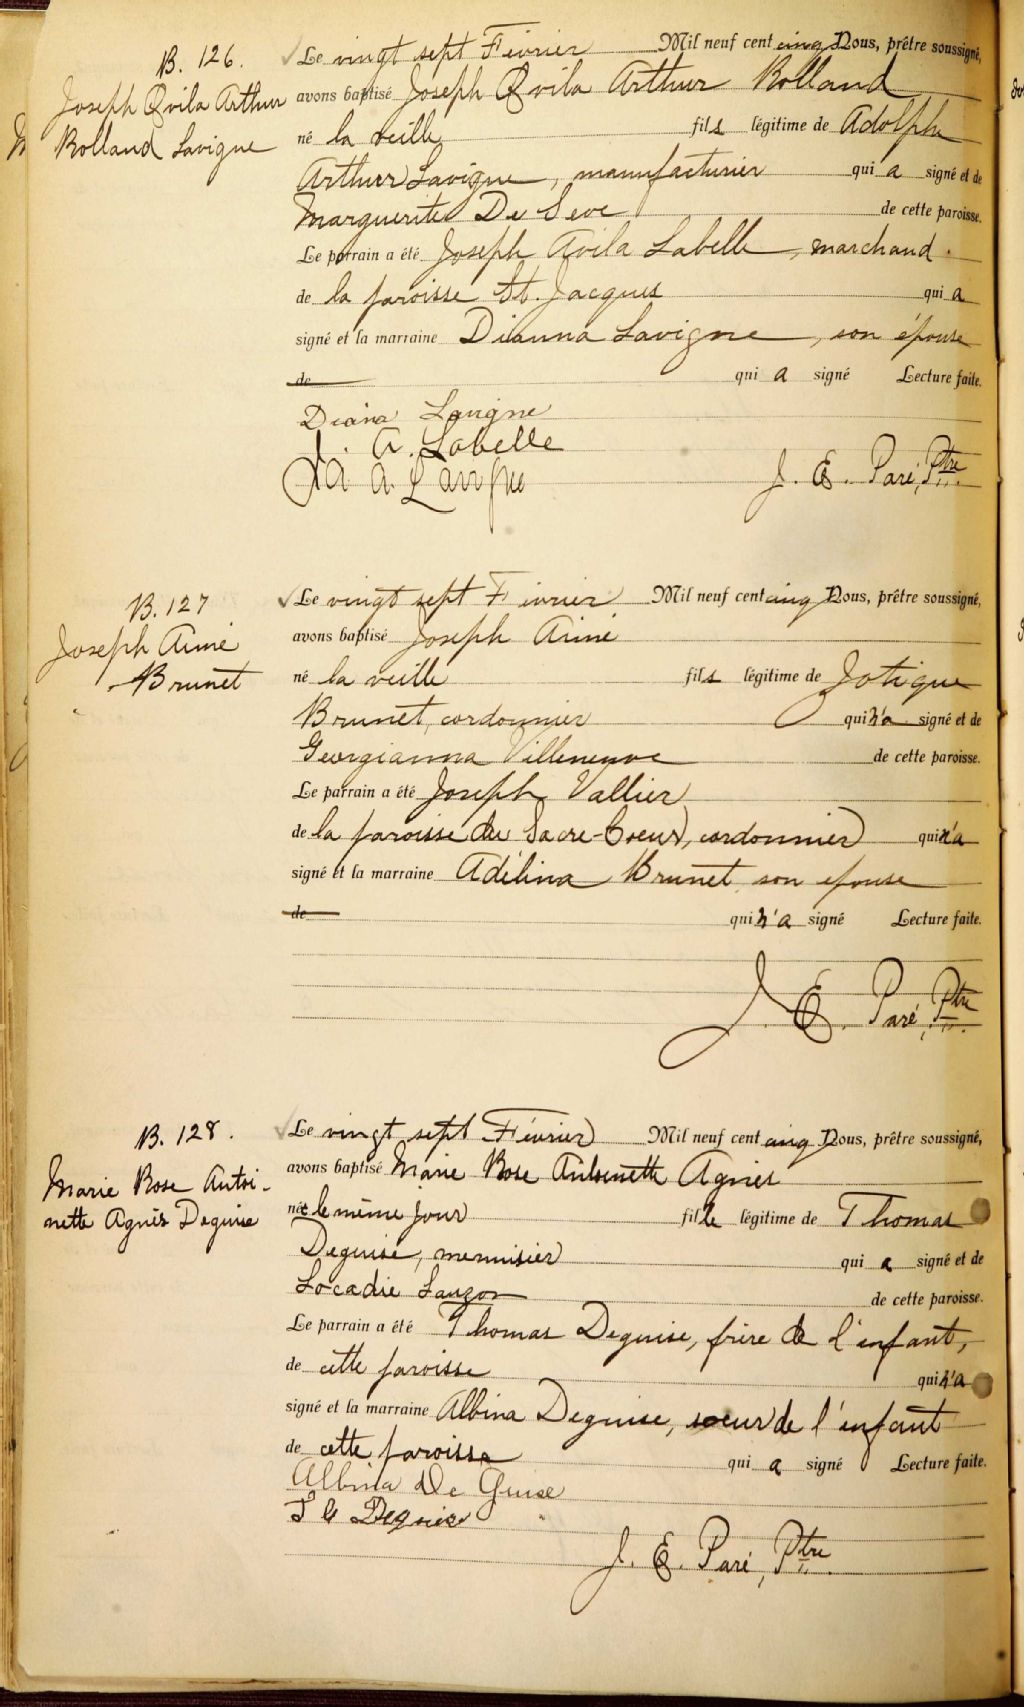 B. 126.
Joseph Ovila Arthur
Rolland Lavigne
Le vingt sept Fevrier Mil neuf cent cinq Nous, prêtre soussigné,
avons baptisé Joseph Ovila Arthur Rolland
né la veille fils légitime de Adolphe
Arthur Lavigne, manufacturier qui a signé et de
Marguerite De Seve de cette paroisse.
Le parrain a été Joseph Avila Labelle, marchand
de la paroisse St. Jacques qui a
signé et la marraine Dianna Lavigne, son épouse
de qui a signé Lecture faite.
Diana Lavigne
J. A. Labelle
A. Lavigne
J. E. Paré, Ptre
B. 127
Joseph Aimé
Brunet
Le vingt sept Fevrier Mil neuf cent cinq Nous, prêtre soussigné,
avons baptisé Joseph Aimé
né la veille fils légitime de Zotique
Brunet, cordonnier qui n'a signé et de
Georgianna Villeneuve de cette paroisse.
Le parrain a été Joseph Vallier
de la paroisse du Sacre-Coeur, cordonnier qui n'a
signé et la marraine Adélina Brunet, son epouse
de qui n'a signé Lecture faite.
J. E. Paré, Ptre
B. 128.
Marie Rose Antoi-
nette Agnès Deguise
Le vingt sept Février Mil neuf cent cinq Nous, prêtre soussigné,
avons baptisé Marie Rose Antoinette Agnes
née le même jour fille légitime de Thomas
Deguise, menuisier qui a signé et de
Locadie Lauzon de cette paroisse.
Le parrain a été Thomas Deguise, frère de l'enfant,
de cette paroisse qui n'a
signé et la marraine Albina Deguise, soeur de l'enfant
de cette paroisse qui a signé Lecture faite.
Albina De Guise
Deguise
J. E. Paré, Ptre